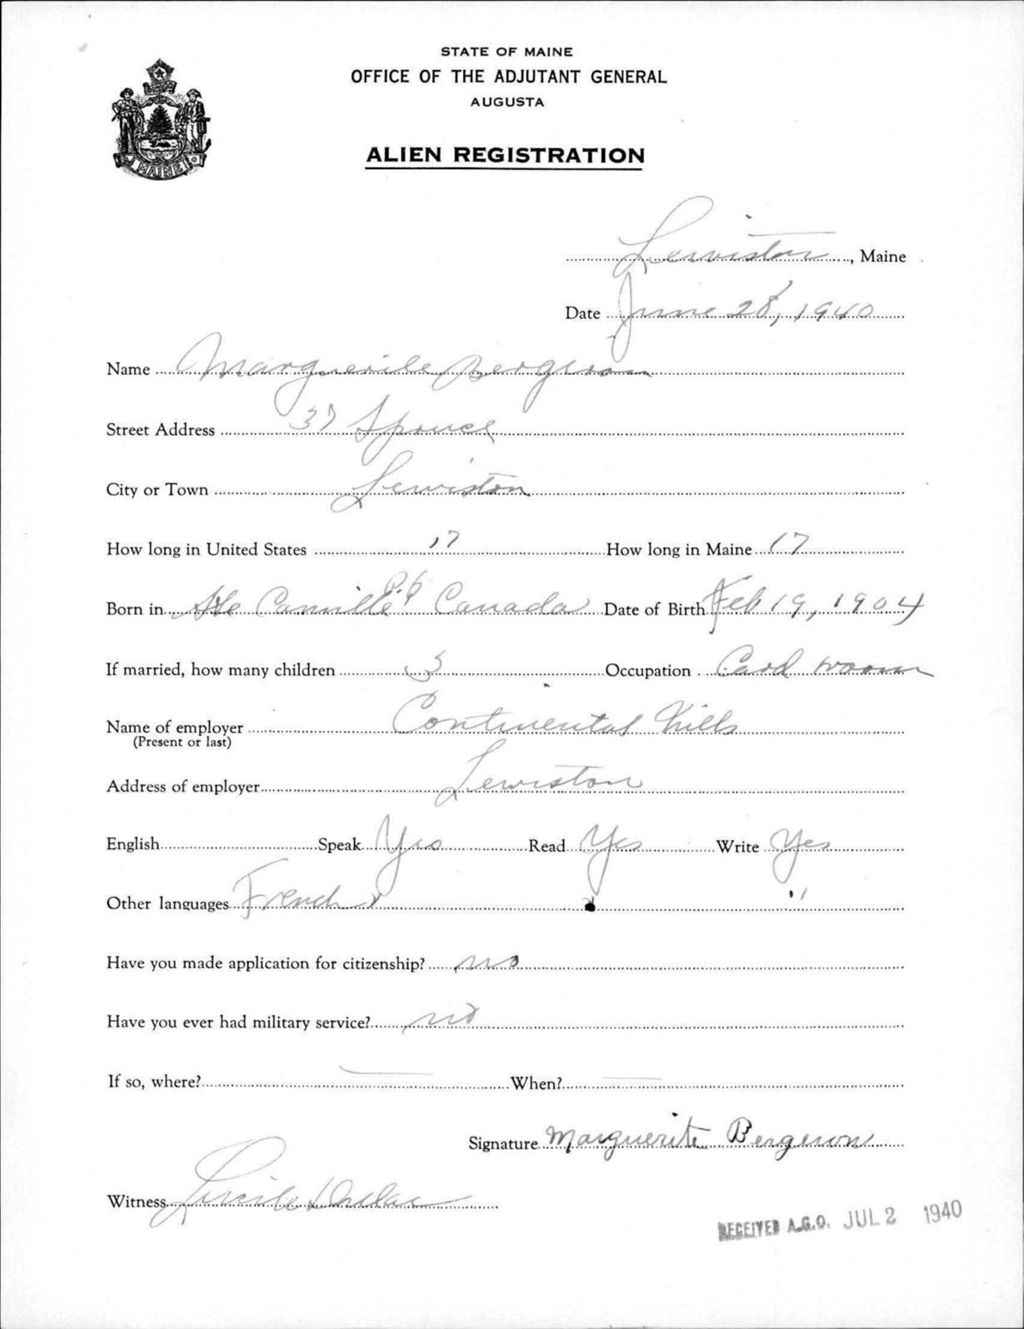 STATE OF MAINE
OFFICE OF THE ADJUTANT GENERAL
AUGUSTA
ALIEN REGISTRATION
MAINE
Lewiston, Maine
Date June 28, 1940
Name Marguerite Bergeron
Street Address 37 Spruce
City or Town Lewiston
How long in United States 17 How long in Maine 17
Born in Ste Camille P.Q Canada Date of Birth Feb 19, 1904
If married, how many children 3 Occupation Card room
Name of employer Continental Mills
(Present or last)
Address of employer Lewiston
English Speak Yes Read Yes Write Yes
Other languages French " " "
Have you made application for citizenship? no
Have you ever had military service? no
If so, where? — When? —
Signature Marguerite Bergeron
Witness Lucile
RECEIVED A.G.O. JUL 2 1940